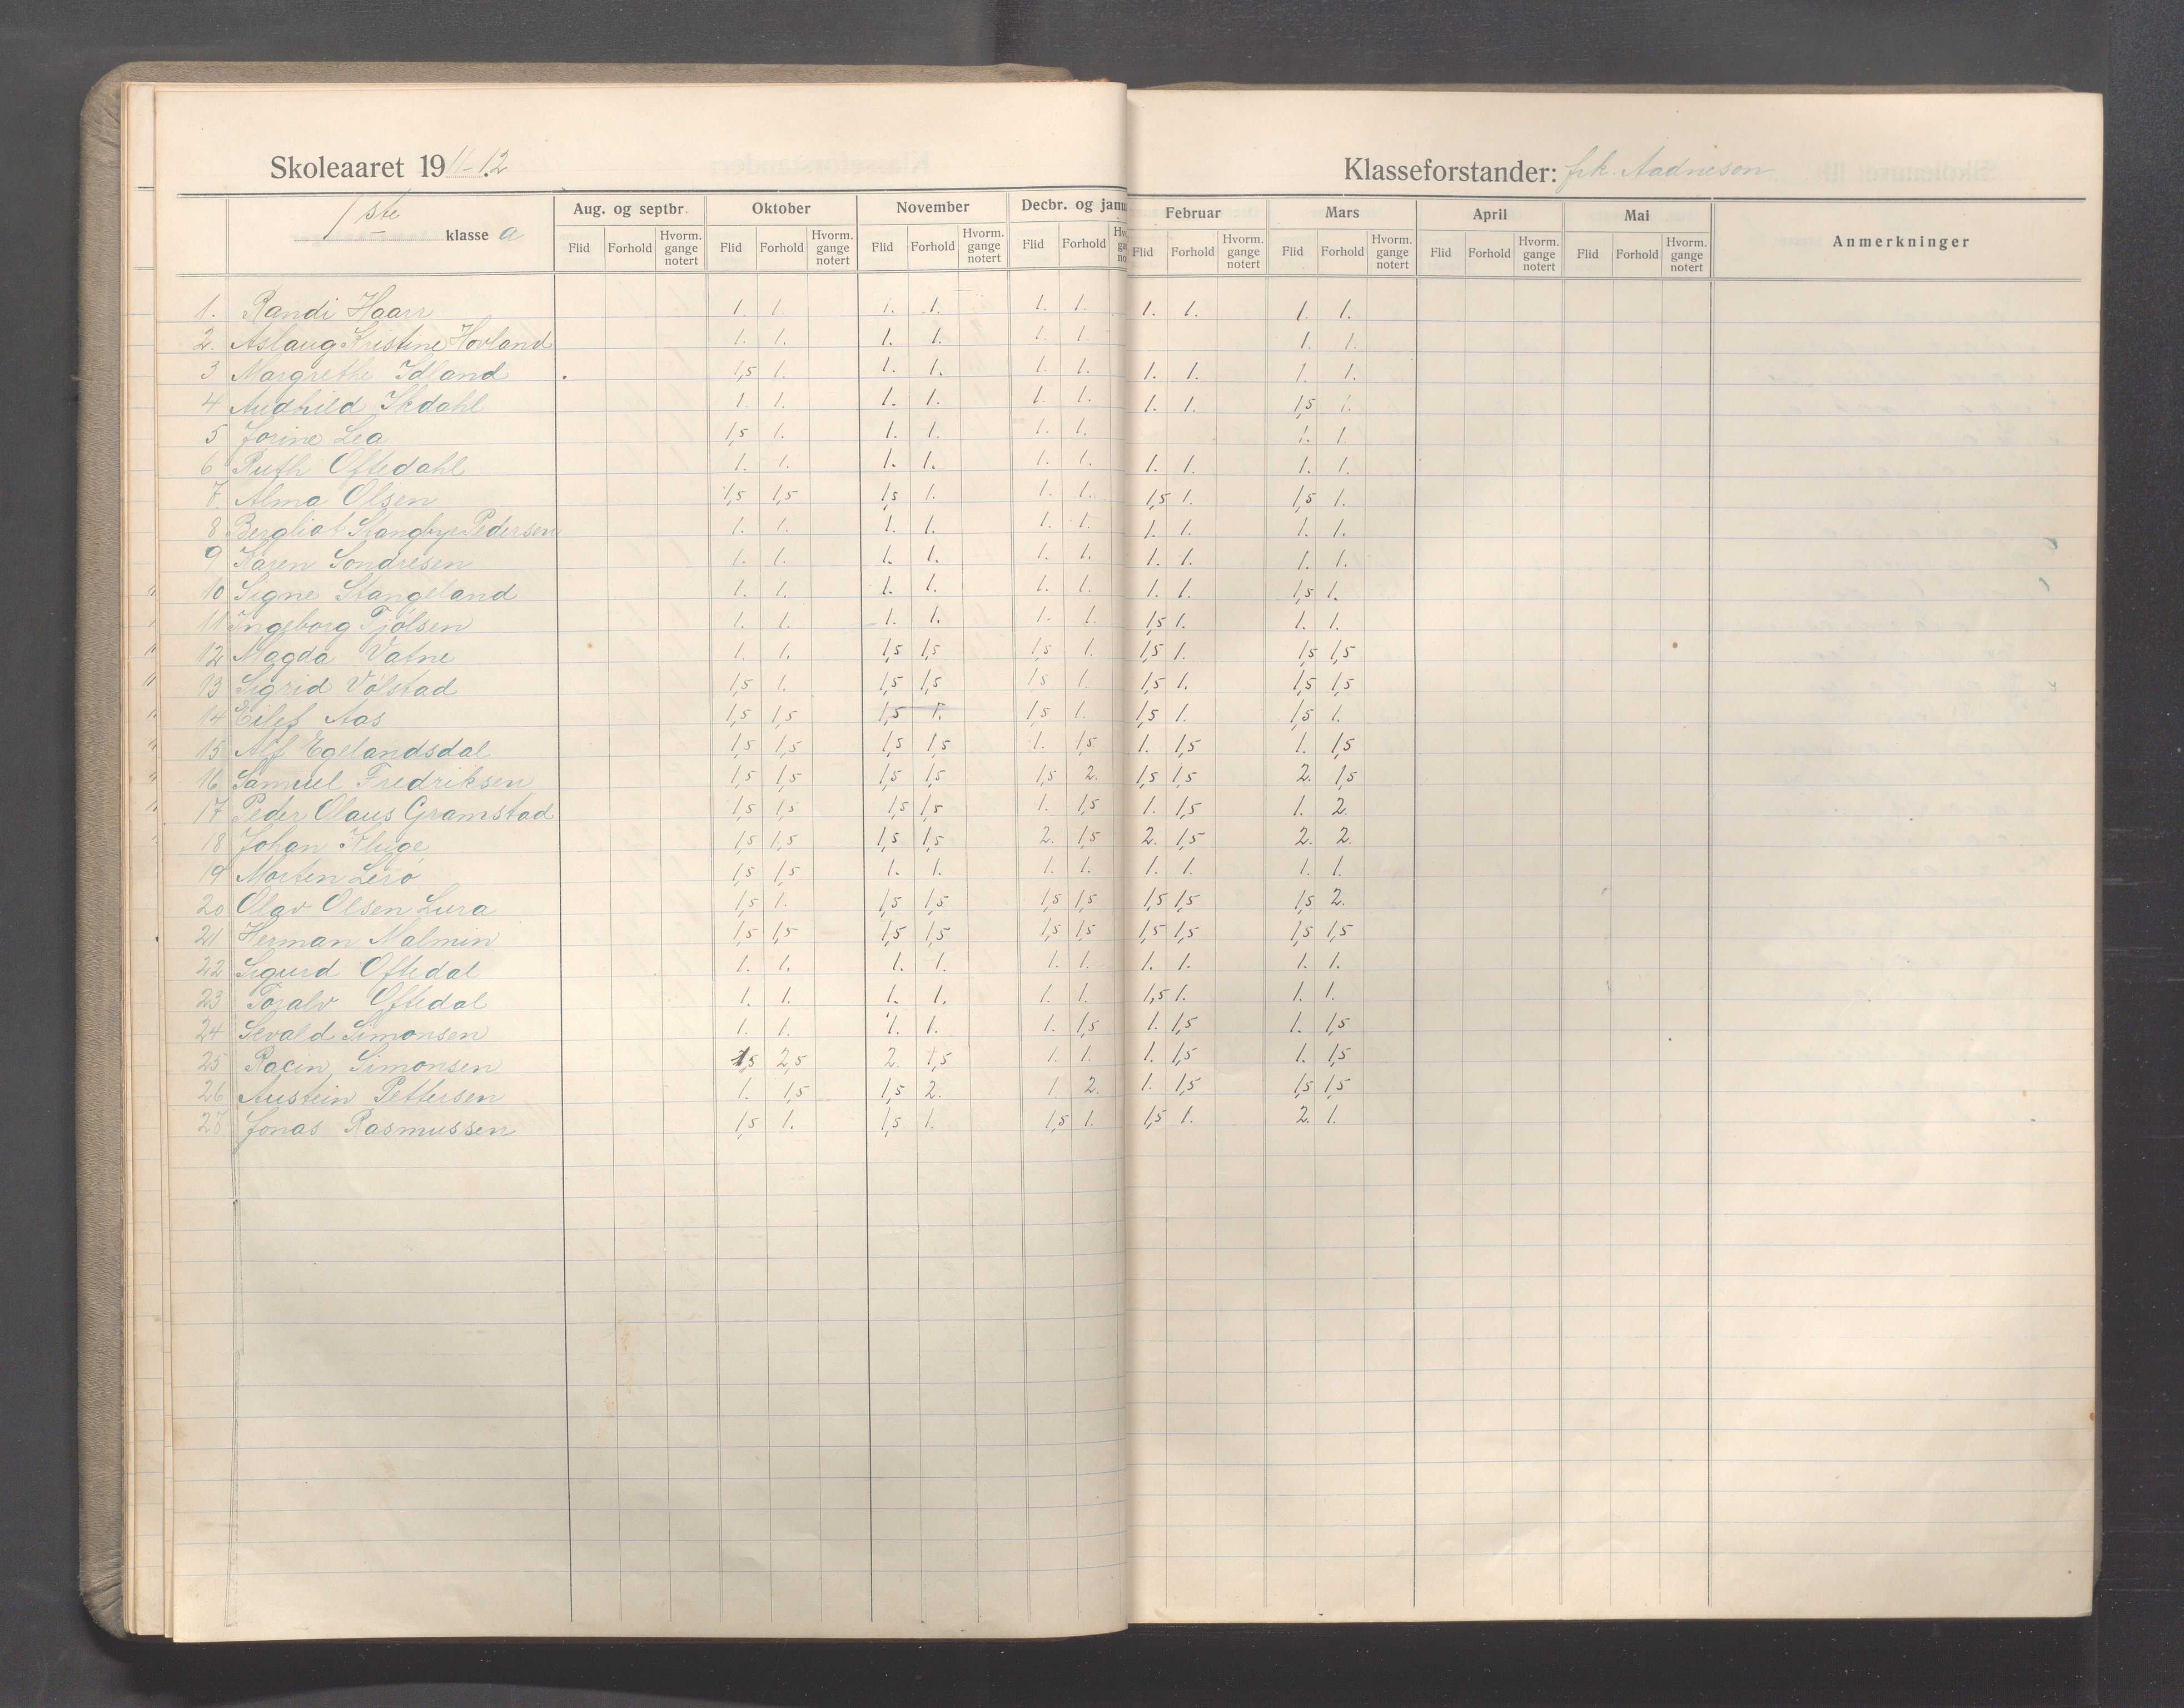 Skoleaaret 1911-12 Klasseforstander: frk. Aadneson
1ste klasse a
Aug. og septbr. Oktober November Decbr. og janu Februar Mars April Mai Anmerkninger
Flid Forhold Hvorm. gange notert Flid Forhold Hvorm. gange notert Flid Forhold Hvorm. gange notert Flid Forhold Flid Forhold Hvorm. gange notert Flid Forhold Hvorm. gange notert Flid Forhold Hvorm. gange notert Flid Forhold Hvorm. gange notert
1. Randi Haarr 1. 1. 1. 1. 1. 1. 1. 1. 1. 1.
2. Aslaug Kristine Hovland 1. 1. 1. 1. 1. 1. 1. 1.
3 Margrethe Idland 1,5 1. 1. 1. 1. 1. 1. 1. 1. 1.
4 Audhild Skdahl 1. 1. 1. 1. 1. 1. 1. 1. 1,5 1.
5 Jorine Lea 1,5 1. 1. 1. 1. 1. 1. 1.
6 Ruth Oftedahl 1. 1. 1. 1. 1. 1. 1. 1. 1. 1.
7. Alma Olsen 1,5 1,5 1,5 1. 1. 1. 1,5 1. 1,5 1.
8 Bergliot Stangbye Pedersen 1. 1. 1. 1. 1. 1. 1. 1. 1. 1.
9 Karen Sondresen 1. 1. 1. 1. 1. 1. 1. 1. 1. 1.
10 Signe Stangeland 1. 1. 1. 1. 1. 1. 1. 1. 1,5 1.
11 Ingeborg Tjølsen 1. 1. 1. 1. 1. 1. 1,5 1. 1. 1.
12 Magda Vatne 1. 1. 1,5 1,5 1,5 1. 1,5 1. 1,5 1,5
13 Sigrid Vølstad 1,5 1. 1,5 1,5 1,5 1. 1,5 1. 1,5 1,5
14 Eilef Aas 1,5 1,5 1,5 1. 1,5 1. 1,5 1. 1,5 1.
15 Alf Egelandsdal 1,5 1,5 1,5 1,5 1. 1,5 1. 1,5 1. 1,5
16 Samuel Fredriksen 1,5 1,5 1,5 1,5 1,5 2. 1,5 1,5 2. 1,5
17 Peder Olaus Gramstad 1,5 1,5 1,5 1,5 1. 1,5 1. 1,5 1. 2.
18 Johan Kluge 1,5 1,5 1,5 1,5 2. 1,5 2. 1,5 2. 2.
19 Morten Lerø 1,5 1,5 1. 1. 1. 1. 1. 1. 1. 1.
20 Olav Olsen Lura 1,5 1. 1,5 1,5 1,5 1,5 1,5 1,5 1,5 2.
21 Herman Malmin 1,5 1,5 1,5 1,5 1,5 1,5 1,5 1,5 1,5 1,5
22 Sigurd Oftedal 1. 1. 1. 1. 1. 1. 1. 1. 1. 1.
23 Toralv Oftedal 1. 1. 1. 1. 1. 1. 1,5 1. 1. 1.
24 Sevald Simonsen 1. 1. 1. 1. 1. 1,5 1. 1,5 1. 1,5
25 Racin Simonsen 1,5 2,5 2. 1,5 1. 1. 1. 1,5 1. 1,5
26 Austein Pettersen 1. 1,5 1,5 2. 1 2. 1. 1,5 1,5 1,5
27 Jonas Rasmussen 1,5 1. 1,5 1. 1,5 1. 1,5 1. 2. 1.